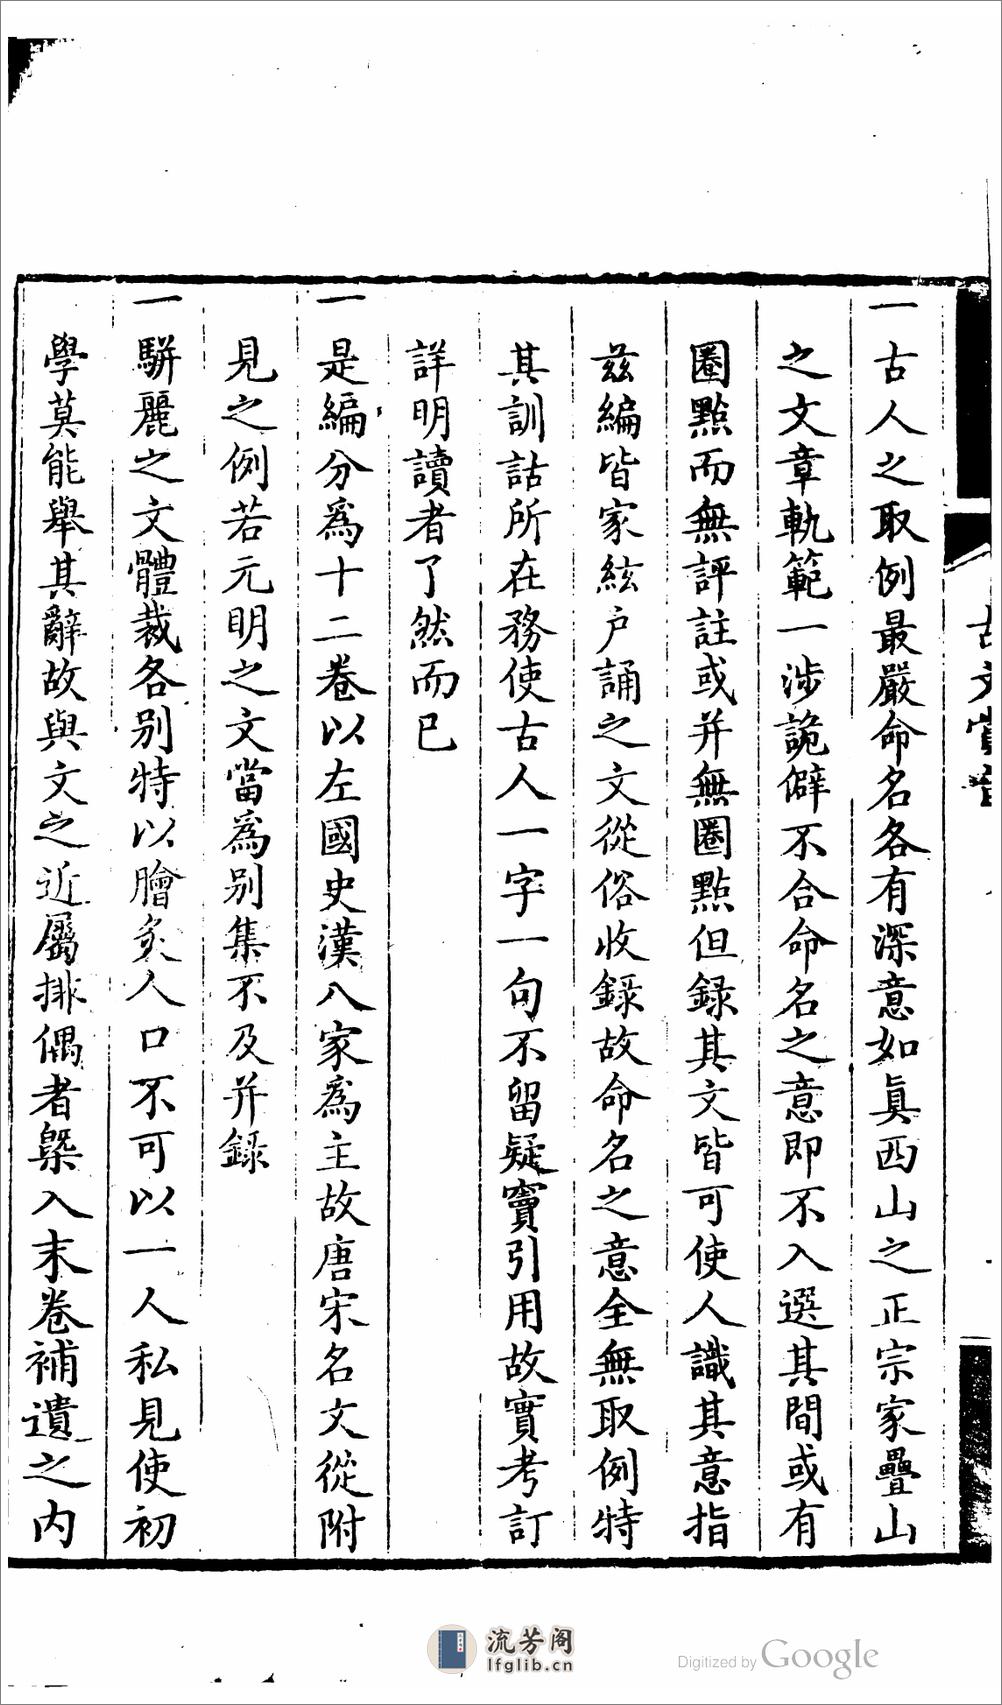 一古人之取例最嚴命名各有深意如眞西山之正宗家疊山
之文章軌範一涉詭僻不合命名之意即不入選其間或有
圈點而無評註或并無圈點但録其文皆可使人識其意指
茲編皆家絃戶誦之文從俗收録故命名之意全無取例特
其訓詁所在務使古人一字一句不留疑竇引用故實考訂
詳明讀者了然而已
一是編分爲十二卷以左國史漢八家爲主故唐宋名文從附
見之例若元明之文當爲别集不及并録
一駢麗之文體裁各别特以膾炙人口不可以一人私見使初
學莫能舉其辭故與文之近屬排偶者槩入末卷補遺之内
流芳阁
lfglib.cn
Digitized by Google